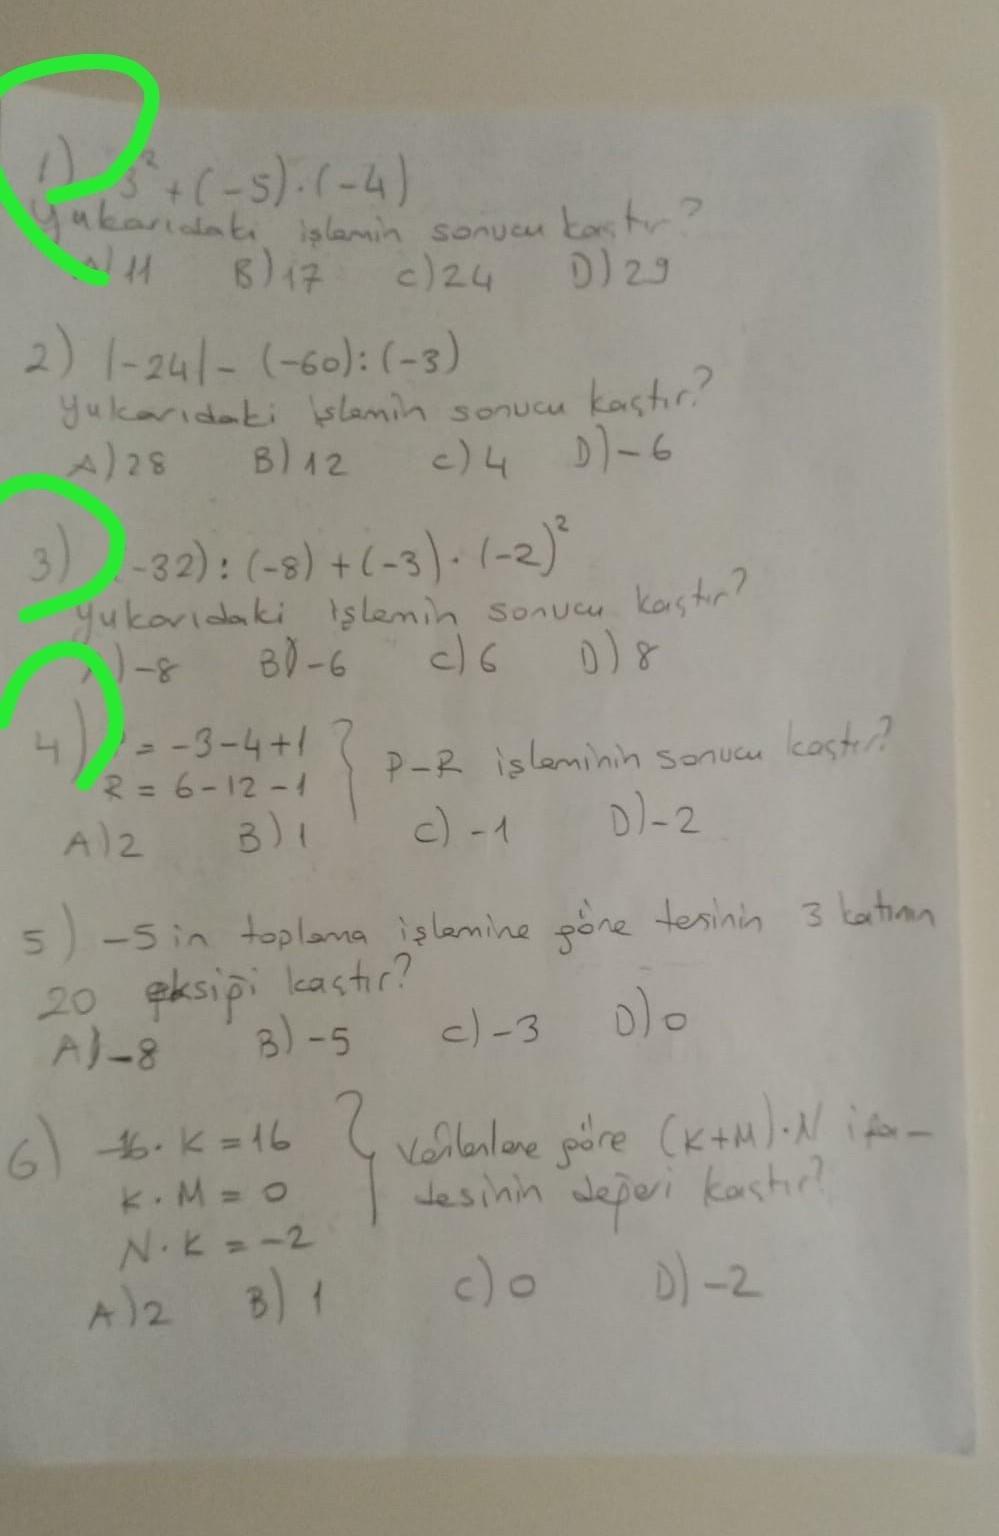 1) 3² + (-5).(-4)
Yukarıdaki işlemin sonucu kaçtır?
A) 11 B) 17 C) 24 D) 29
2) |-24| - (-60):(-3)
Yukarıdaki işlemin sonucu kaçtır?
A) 28 B) 12 C) 4 D) -6
3) (-32):(-8)+(-3).(-2)²
Yukarıdaki işlemin sonucu kaçtır?
A) -8 B) -6 C) 6 D) 8
4) P = -3-4+1
R = 6-12-1
} P-R işleminin sonucu kaçtır?
A) 2 B) 1 C) -1 D) -2
5) -5 in toplama işlemine göre tersinin 3 katının
20 eksiği kaçtır?
A) -8 B) -5 C) -3 D) 0
6) -16.K = 16
K.M = 0
N.K = -2
} Verilenlere göre (K+M).N ifa-
desinin değeri kaçtır?
A) 2 B) 1 C) 0 D) -2